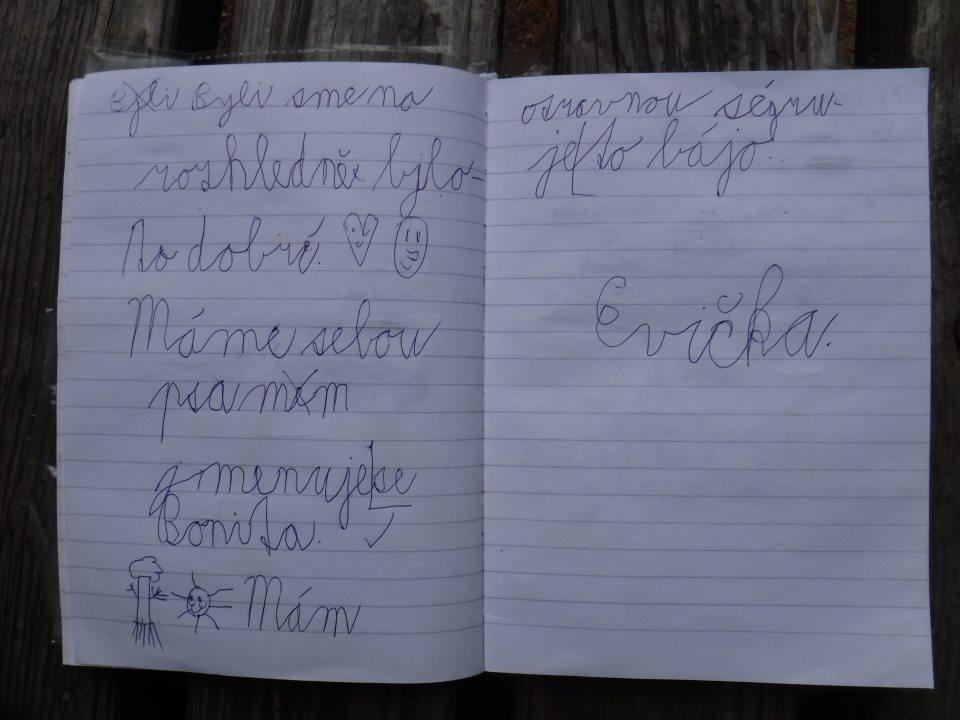 Byli Byli sme na
rozhledně bylo
to dobré.
Máme sebou
psa mam
jmenuje se
Bonita.
Mám
otravnou ségru.
je to bájo.
Evička.